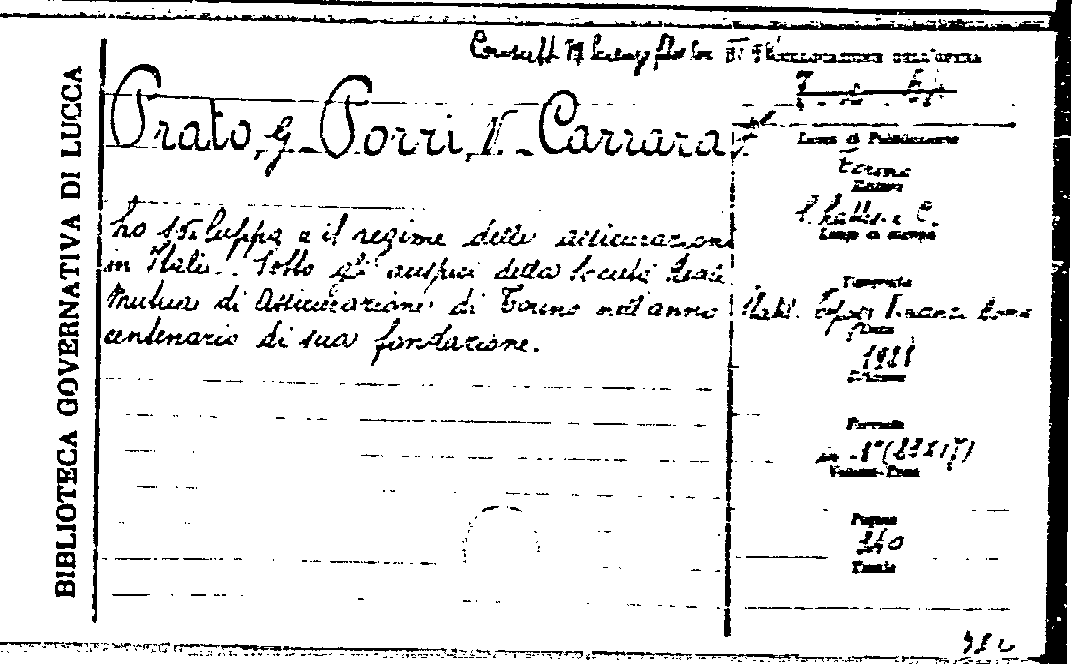 BIBLIOTECA GOVERNATIVA DI LUCCA
COLLOCAZIONE DELL'OPERA
Prato, G. Porri, V. Carrara
Lo sviluppo e il regime delle assicurazioni
in Italia. Sotto gli auspici della Società Reale
Mutua di Assicurazione di Torino nell'anno
centenario di sua fondazione.
Luogo di Pubblicazione
Torino
Editore
Luogo di stampa
Tipografia
Data
1928
Edizione
Formato
in 8° (25x17)
Volumi-Tomi
Pagine
340
Tavole